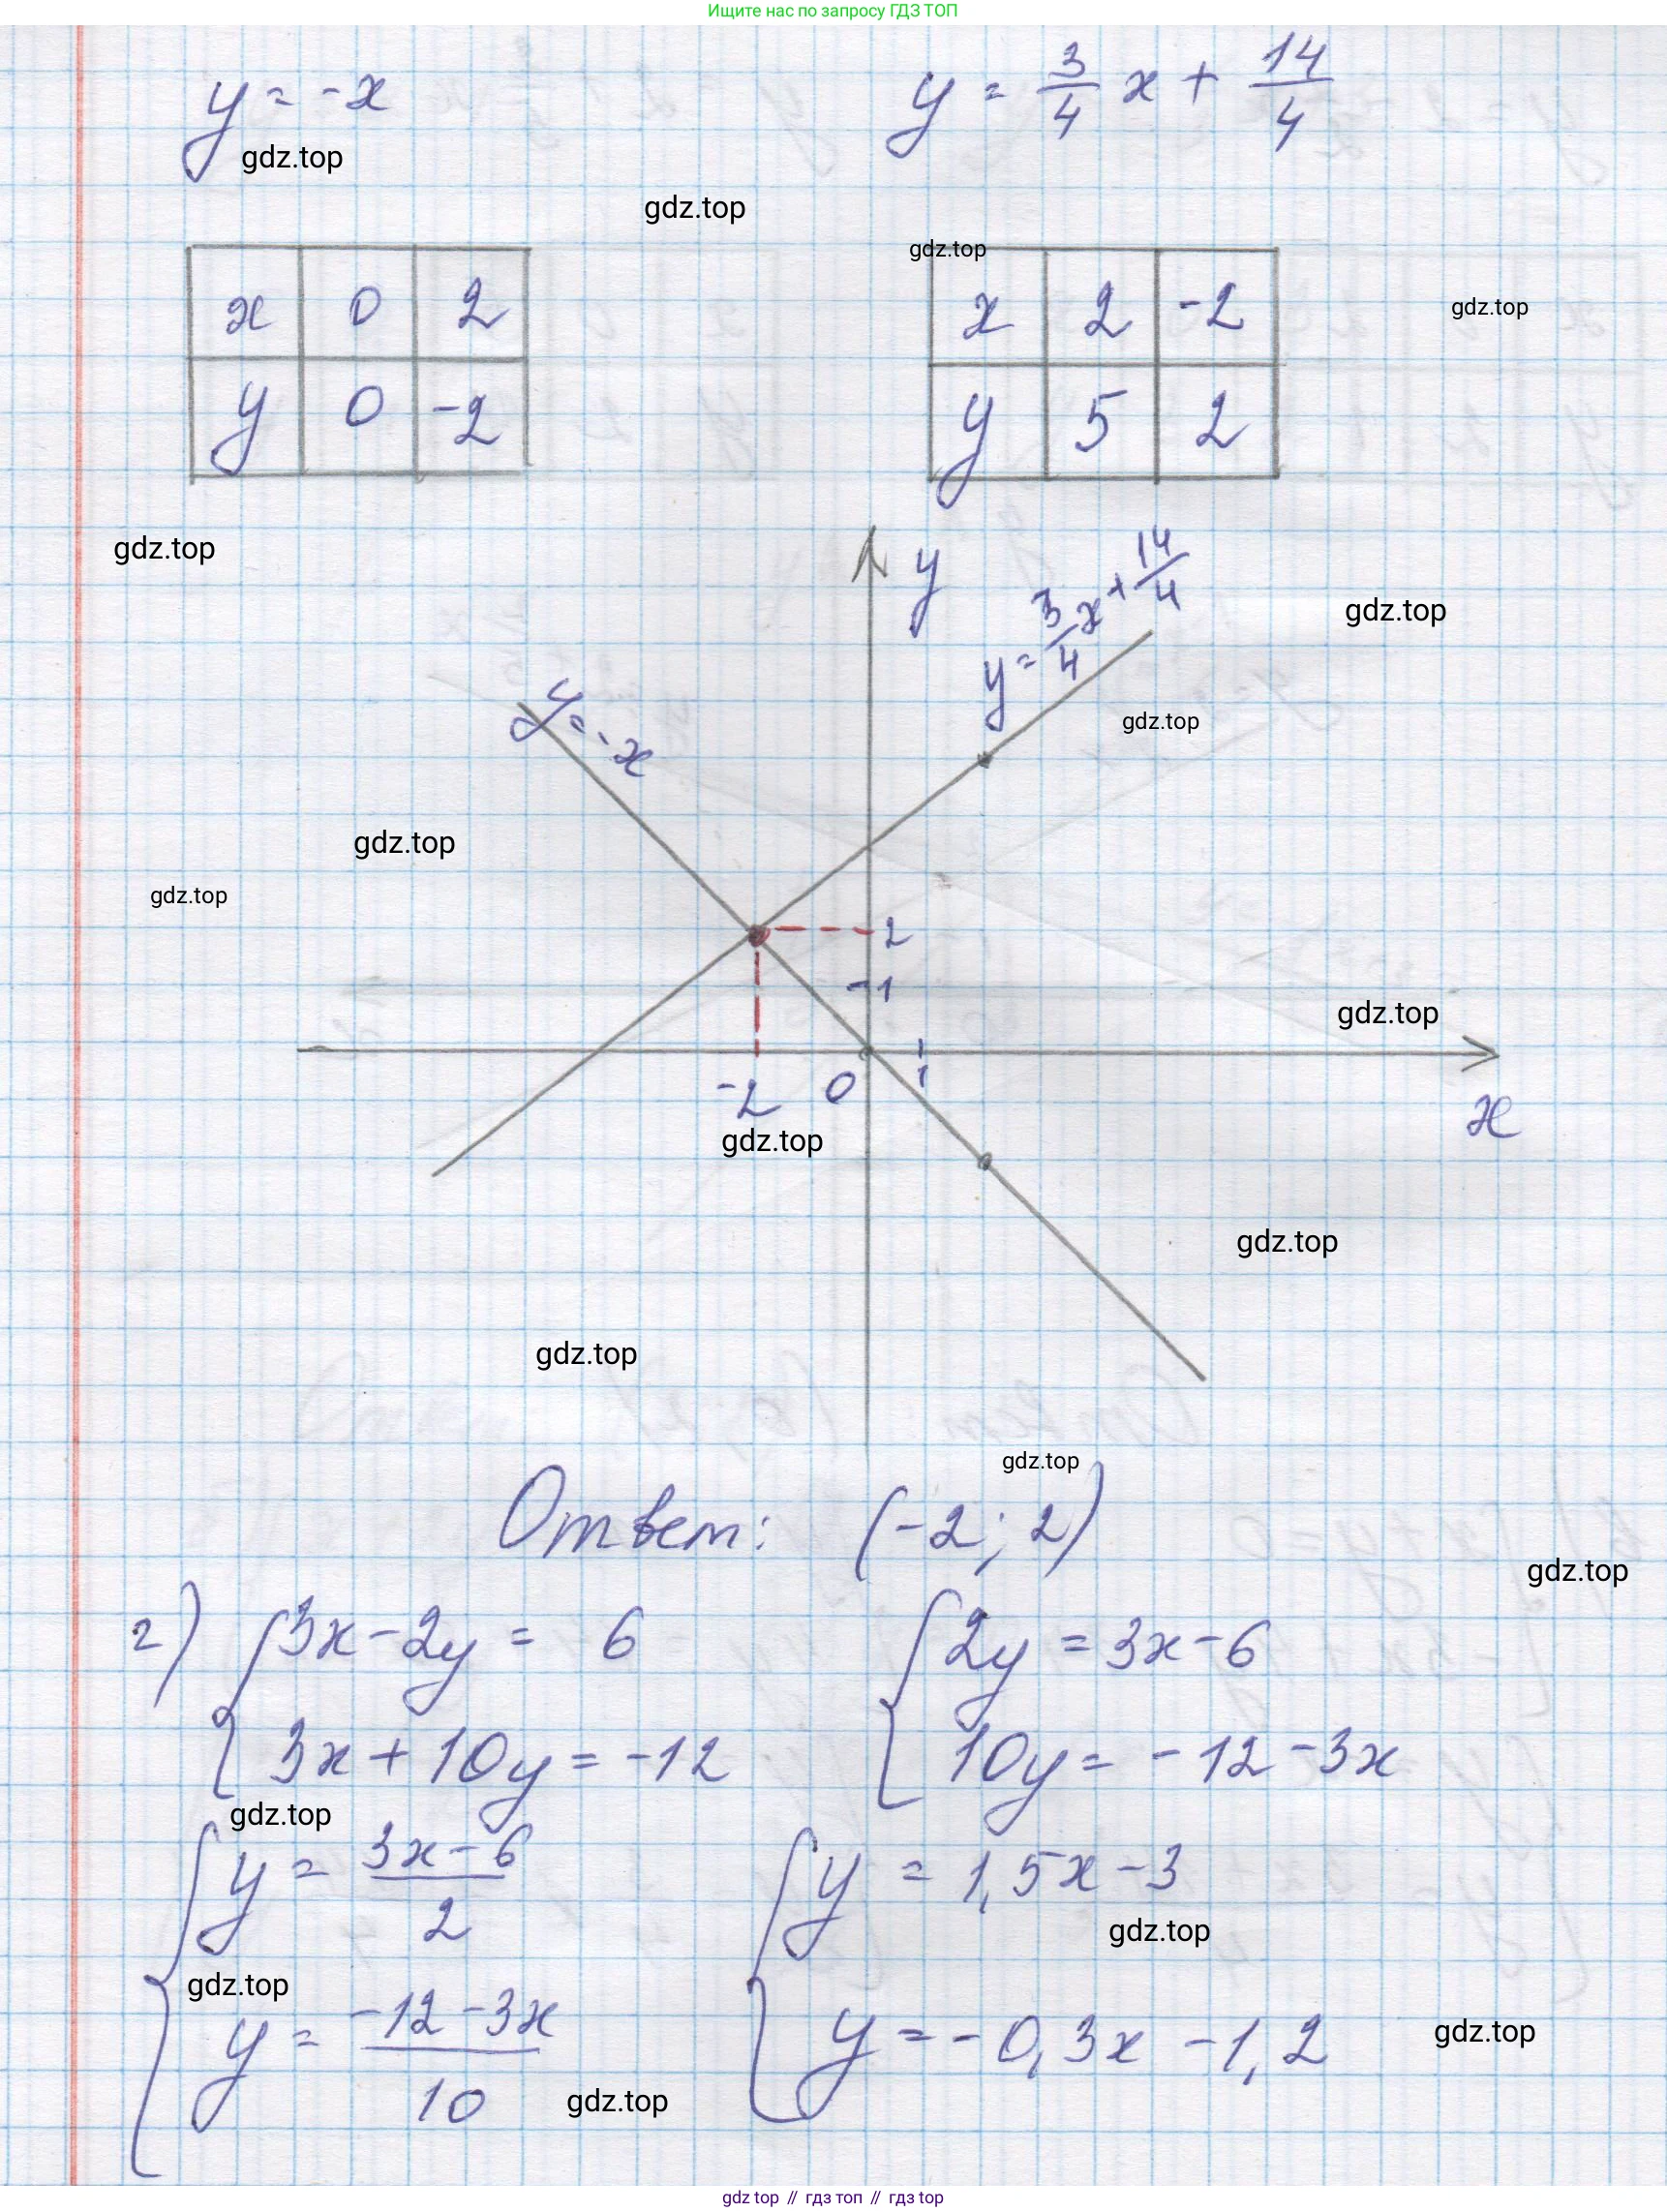 Ищите нас по запросу ГДЗ ТОП
y = -x
y = 3/4 x + 14/4
gdz.top
gdz.top
gdz.top
x 0 2
x 2 -2
gdz.top
y 0 -2
y 5 2
gdz.top
y
y = 3/4 x + 14/4
gdz.top
y = -x
gdz.top
gdz.top
gdz.top
2
1
gdz.top
-2 0 1
x
gdz.top
gdz.top
gdz.top
gdz.top
Ответ: (-2; 2)
gdz.top
г) { 3x - 2y = 6
3x + 10y = -12
{ 2y = 3x - 6
10y = -12 - 3x
gdz.top
{ y = (3x - 6)/2
y = (-12 - 3x)/10
{ y = 1,5x - 3
y = -0,3x - 1,2
gdz.top
gdz.top
gdz.top
gdz.top
gdz top // гдз топ // gdz top